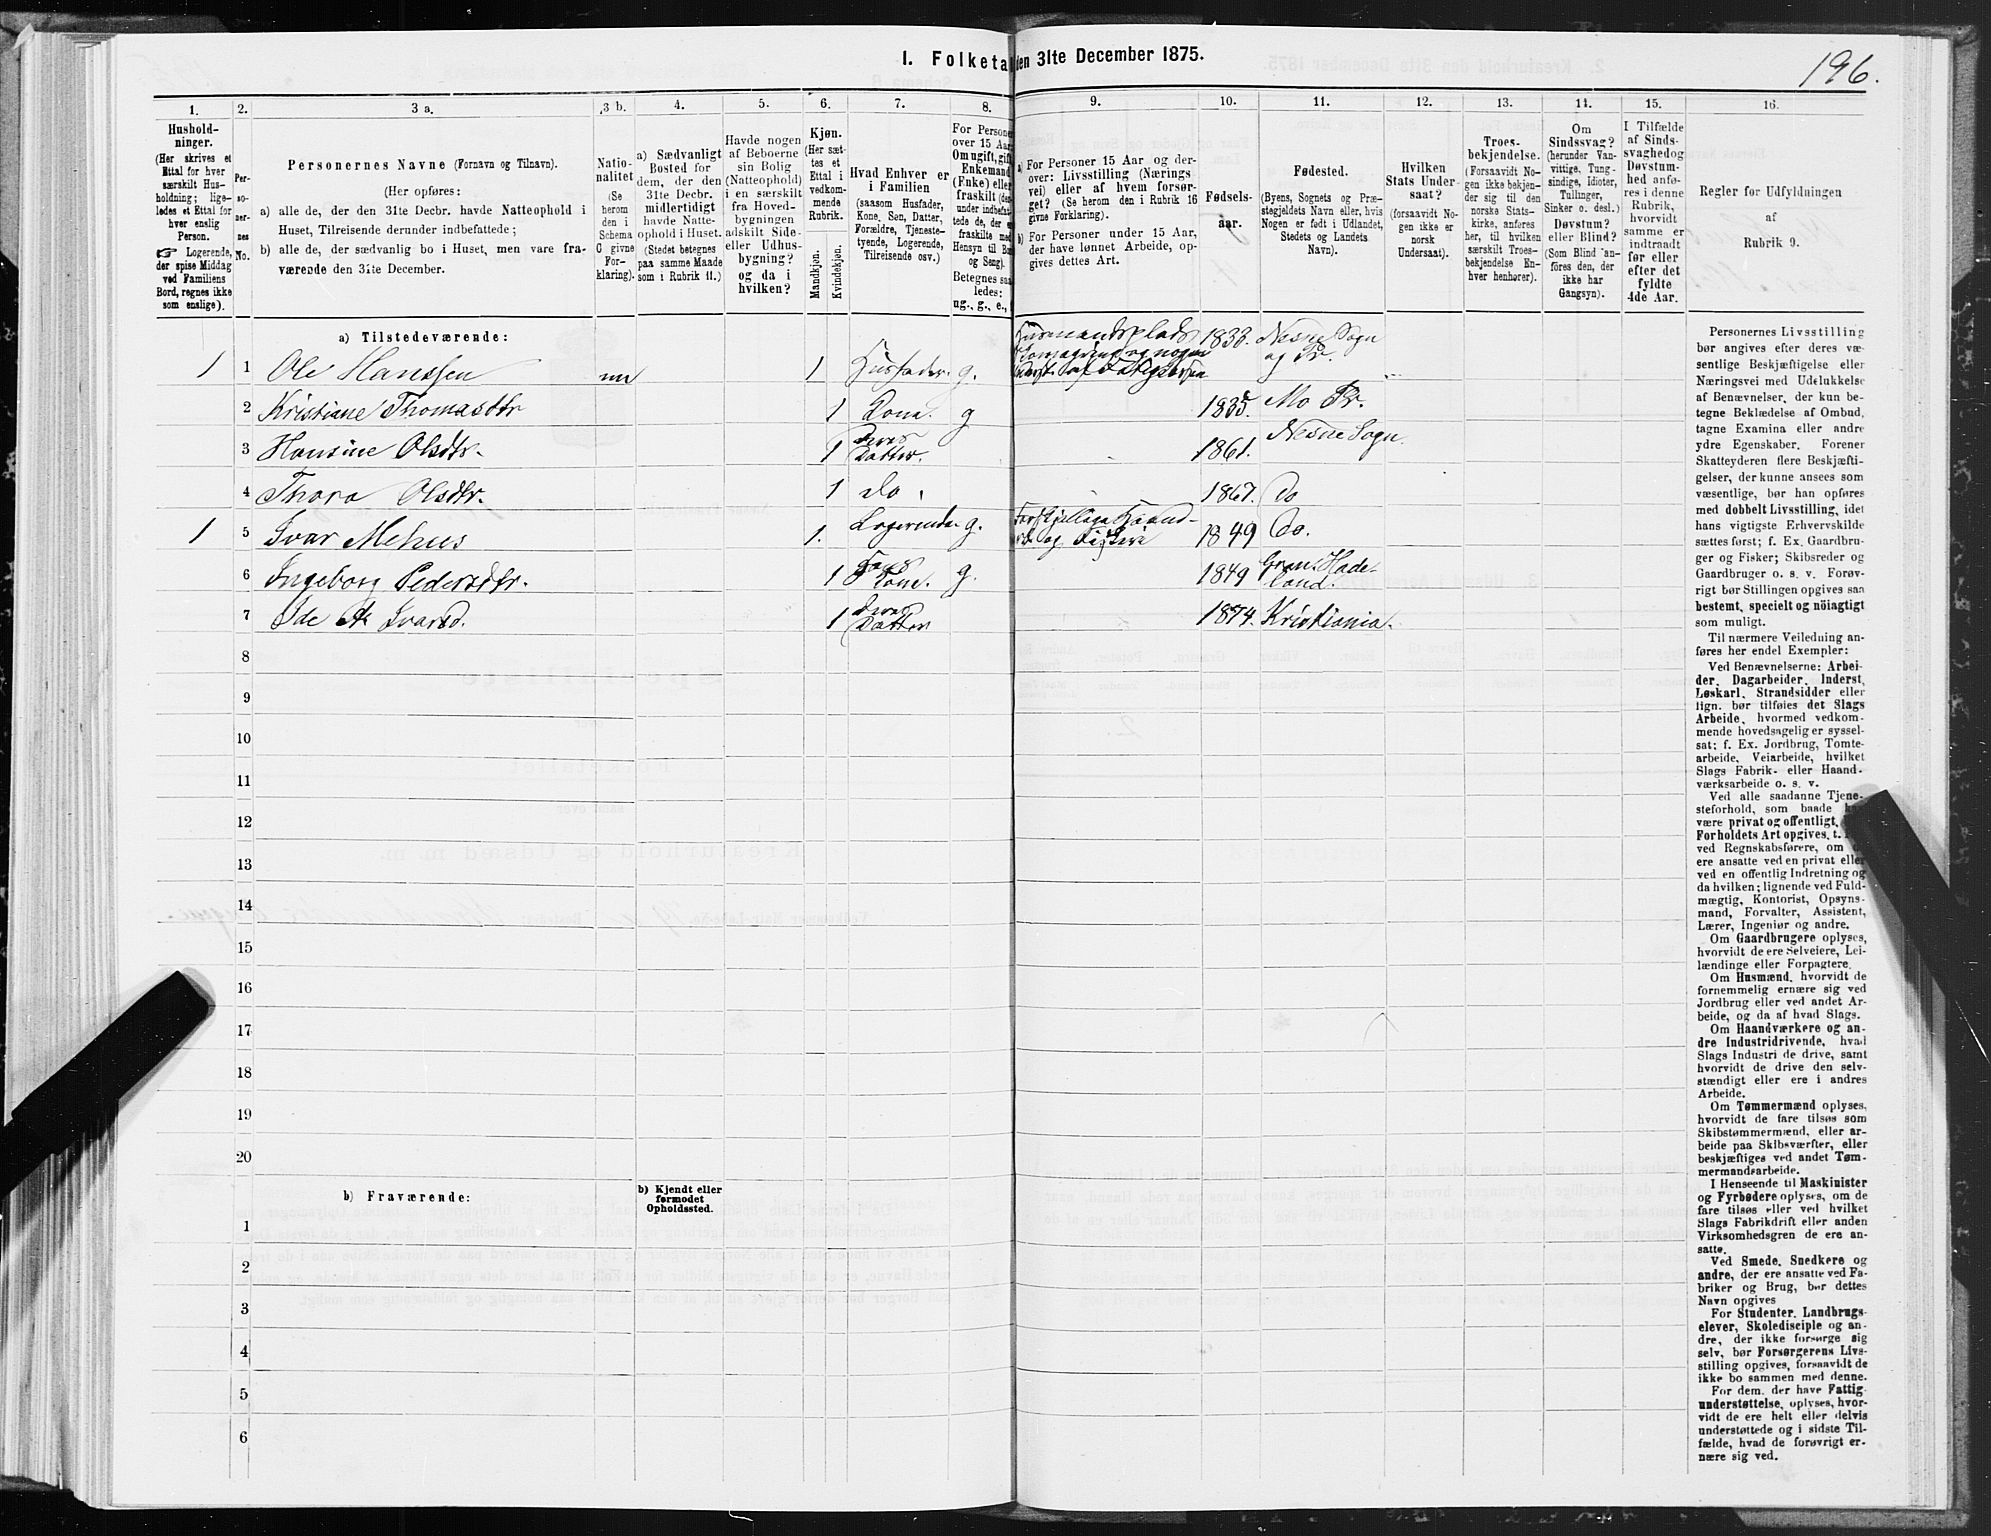 1. Folketal den 31te December 1875.
196.
1.
2.
3 a.
3 b.
4.
5.
6.
7.
8.
9.
10.
11.
12.
13.
14.
15.
16.
Hushold-
ninger.
(Her skrives et
Ettal for hver
særskilt Hus-
holdning; lige-
ledes et Ettal for
hver enslig
Person.
☞ Logerende,
der spise Middag
ved Familiens
Bord, regnes ikke
som enslige).
Per-
so-
ner-
nes
No.
Personernes Navne (Fornavn og Tilnavn).
(Her opføres:
a) alle de, der den 31te Decbr. havde Natteophold i
Huset, Tilreisende derunder indbefattede;
b) alle de, der sædvanlig bo i Huset, men vare fra-
værende den 31te December.
Natio-
nalitet
(Se
herom
den i
Schema
C givne
For-
klaring).
a) Sædvanligt
Bosted for
dem, der den
31te Decbr.
midlertidigt
havde Natte-
ophold i Huset.
(Stedet betegnes
paa samme Maade
som i Rubrik 11.)
Havde nogen
af Beboerne
sin Bolig
(Natteophold)
i en særskilt
fra Hoved-
bygningen
adskilt Side-
eller Udhus-
bygning?
og da i
hvilken?
Kjøn.
(Her sæt-
tes et
Ettal i
vedkom-
mende
Rubrik.
Mandkjøn.
Kvindekjøn.
Hvad Enhver er
i Familien
(saasom Husfader,
Kone, Søn, Datter,
Forældre, Tjeneste-
tyende, Logerende,
Tilreisende osv.)
For Personer
over 15 Aar:
Om ugift, gift,
Enkemand
(Enke) eller
fraskilt
Betegnes saa-
ledes:
ug., g., e.,
a) For Personer 15 Aar og der-
over: Livsstilling (Nærings-
vei) eller af hvem forsør-
get? (Se herom den i Rubrik 16
givne Forklaring).
b) For Personer under 15 Aar,
der have lønnet Arbeide, op-
gives dettes Art.
Fødsels-
aar.
Fødested.
(Byens, Sognets og Præ-
stegjeldets Navn eller, hvis
Nogen er født i Udlandet,
Stedets og Landets
Navn).
Hvilken
Stats Under-
saat?
(forsaavidt No-
gen ikke er
norsk
Undersaat).
Troes-
bekjendelse.
(Forsaavidt No-
gen ikke bekjen-
der sig til den
norske Stats-
kirke, anføres
her, til hvilken
særskilt Troes-
bekjendelse En-
hver henhører).
Om
Sindssvag?
(herunder Van-
vittige, Tung-
sindige, Idioter,
Tullinger,
Sinker o. desl.)
Døvstum?
eller Blind?
(Som Blind an-
føres den, der
ikke har
Gangsyn).
I Tilfælde
af Sinds-
svaghed og
Døvstum-
hed anfø-
res i denne
Rubrik,
hvorvidt
samme er
indtraadt
før eller
efter det
fyldte
4de Aar.
Regler for Udfyldningen
af
Rubrik 9.
a) Tilstedeværende:
1 1 Ole Hanssen nn 1 Husfader g. Husmandsplads 1833. Nesne Sogn og Pr.
2 Kristiane Thomasdtr 1 Kone. g 1835. Mo Pr.
3 Hansine Olsdtr. 1 Deres Datter. 1861. Nesne Sogn.
4 Thora Olsdtr. 1 Do. 1867. Do
1 5 Ivar Mehus 1. Logerende g. 1849 Do.
6 Ingeborg Pedersdtr. 1 Hans Kone. g. 1849 Gran. Hade-
land.
7 1 Deres Datter 1874. Kristiania.
8
9
10
11
12
13
14
15
16
17
18
19
20
b) Fraværende:
b) Kjendt eller
formodet
Opholdssted.
1
2
3
4
5
6
Personernes Livsstilling
bør angives efter deres væ-
sentlige Beskjæftigelse eller
Næringsvei med Udelukkelse
af Benævnelser, der kun be-
tegne Beklædelse af Ombud,
tagne Examina eller andre
ydre Egenskaber. Forener
Skatteyderen flere Beskjæfti-
gelser, der kunne ansees som
væsentlige, bør han opføres
med dobbelt Livsstilling, idet
hans vigtigste Erhvervskilde
sættes først; f. Ex. Gaardbru-
ger og Fisker; Skibsreder og
Gaardbruger o. s. v. Forøv-
rigt bør Stillingen opgives saa
bestemt, specielt og nøiagtigt
som muligt.
Til nærmere Veiledning an-
føres her endel Exempler:
Ved Benævnelserne: Arbei-
der, Dagarbeider, Inderst,
Løskarl, Strandsidder eller
lign. bør tilføies det Slags
Arbeide, hvormed vedkom-
mende hovedsagelig er syssel-
sat; f. Ex. Jordbrug, Tomte-
arbeide, Veiarbeide, hvilket
Slags Fabrik- eller Haand-
værksarbeide o. s. v.
Ved alle saadanne Tjene-
steforhold, som baade
være privat og offentligt,
Forholdets Art opgives, t.
ved Regnskabsførere, om
ere ansatte ved en privat eller
ved en offentlig Indretning og
da hvilken; lignende ved Fuld-
mægtig, Kontorist, Opsyns-
mand, Forvalter, Assistent,
Lærer, Ingeniør og andre.
Om Gaardbrugere oplyses,
hvorvidt de ere Selveiere, Lei-
lændinge eller Forpagtere.
Om Husmænd, hvorvidt de
fornemmelig ernære sig ved
Jordbrug eller ved andet Ar-
beide, og da af hvad Slags.
Om Haandværkere og an-
dre Industridrivende, hvad
Slags Industri de drive, samt
hvorvidt de drive den selv-
stændigt eller ere i andres
Arbeide.
Om Tømmermænd oplyses,
hvorvidt de fare tilsøs som
Skibstømmermænd, eller ar-
beide paa Skibsværfter, eller
beskjæftiges ved andet Tøm-
mermandsarbeide.
I Henseende til Maskinister
og Fyrbødere oplyses, om de
fare tilsøs eller ved hvilket
Slags Fabrikdrift eller anden
Virksomhedsgren de ere an-
satte.
Ved Smede, Snedkere og
andre, der ere ansatte ved Fa-
briker og Brug, bør dettes
Navn opgives
For Studenter, Landbrugs-
elever, Skoledisciple og an-
dre, der ikke forsørge sig
selv, bør Forsørgerens Livs-
stilling opgives, forsaavidt de
ikke bo sammen med denne.
For dem, der have Fattig-
understøttelse, oplyses, hvor-
vidt de ere helt eller delvis
understøttede og i sidste Til-
fælde, hvad de forøvrigt er-
nære sig ved.